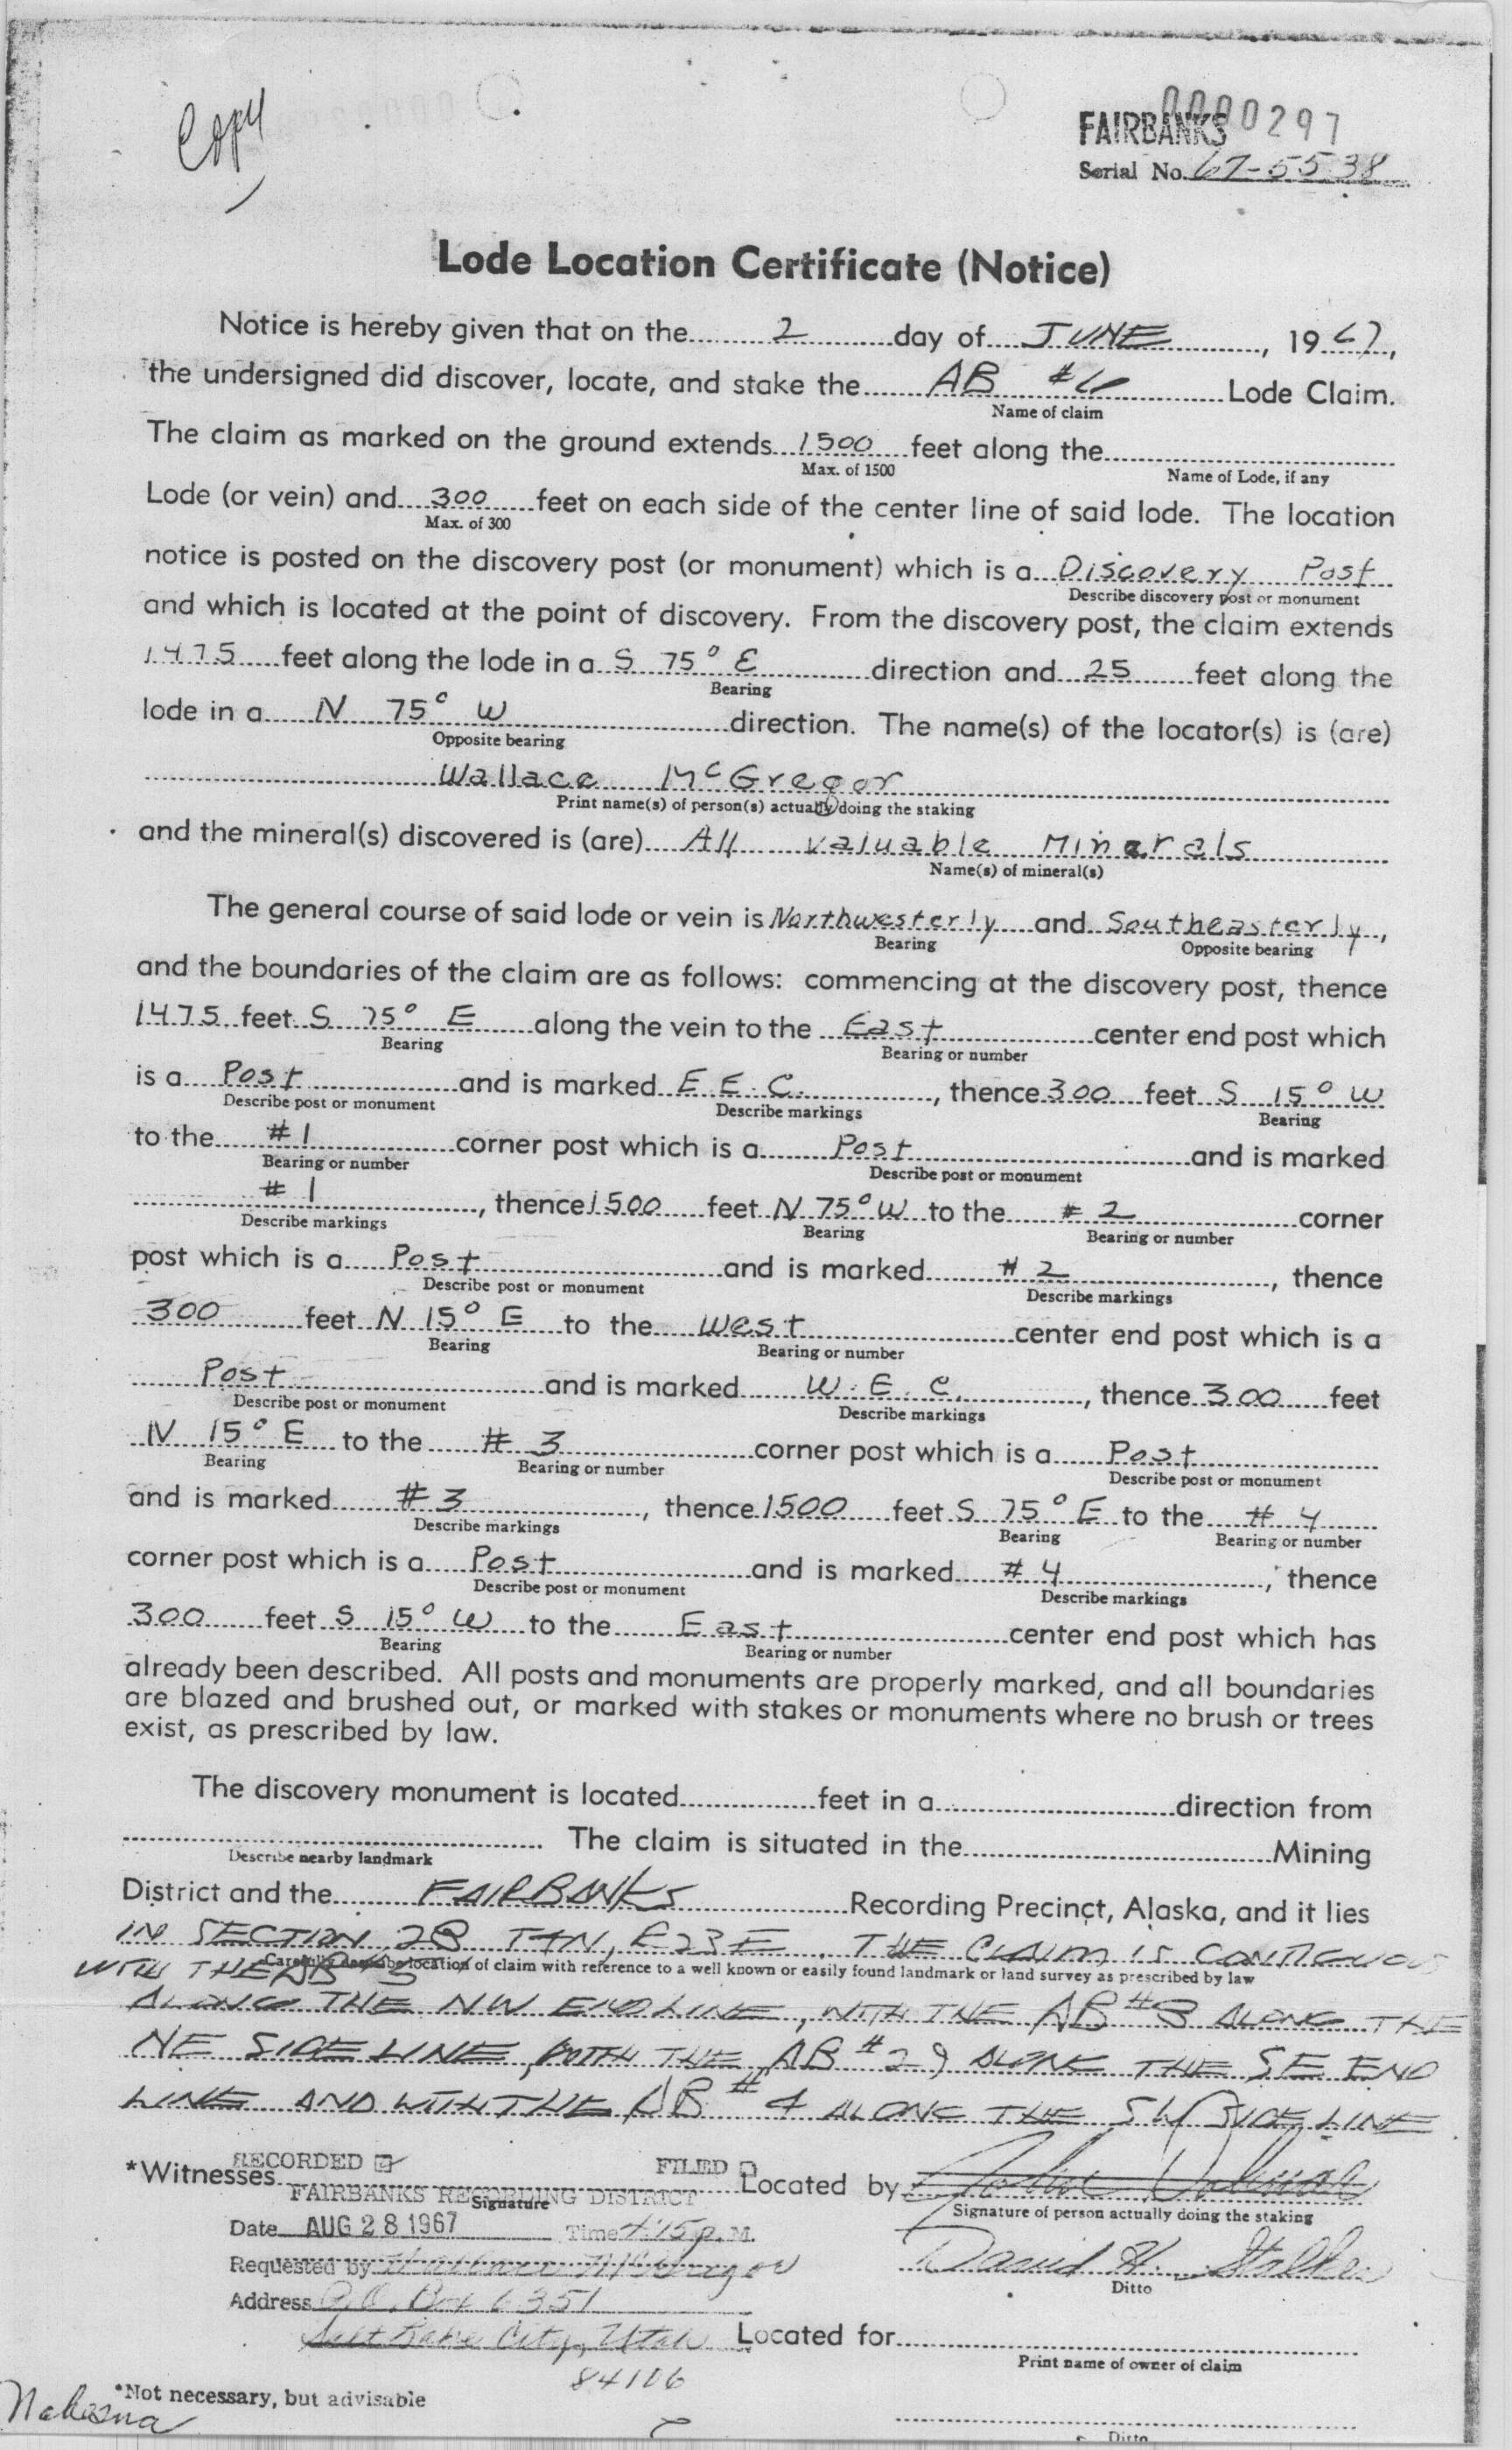 Copy
FAIRBANKS 0000297
Serial No. 67-5538
Lode Location Certificate (Notice)
Notice is hereby given that on the 2 day of JUNE, 1967,
the undersigned did discover, locate, and stake the AB #6 Lode Claim.
Name of claim
The claim as marked on the ground extends 1500 feet along the
Max. of 1500 Name of Lode, if any
Lode (or vein) and 300 feet on each side of the center line of said lode. The location
Max. of 300
notice is posted on the discovery post (or monument) which is a Discovery Post
Describe discovery post or monument
and which is located at the point of discovery. From the discovery post, the claim extends
1475 feet along the lode in a S 75° E direction and 25 feet along the
Bearing
lode in a N 75° W direction. The name(s) of the locator(s) is (are)
Opposite bearing
Wallace McGregor
Print name(s) of person(s) actually doing the staking
and the mineral(s) discovered is (are) All valuable Minerals
Name(s) of mineral(s)
The general course of said lode or vein is Northwesterly and Southeasterly,
Bearing Opposite bearing
and the boundaries of the claim are as follows: commencing at the discovery post, thence
1475 feet S 75° E along the vein to the East center end post which
Bearing Bearing or number
is a Post and is marked E. E. C., thence 300 feet S 15° W
Describe post or monument Describe markings Bearing
to the #1 corner post which is a Post and is marked
Bearing or number Describe post or monument
#1, thence 1500 feet N 75° W to the #2 corner
Describe markings Bearing Bearing or number
post which is a Post and is marked #2, thence
Describe post or monument Describe markings
300 feet N 15° E to the West center end post which is a
Bearing Bearing or number
Post and is marked W. E. C., thence 300 feet
Describe post or monument Describe markings
N 15° E to the #3 corner post which is a Post
Bearing Bearing or number Describe post or monument
and is marked #3, thence 1500 feet S 75° E to the #4
Describe markings Bearing Bearing or number
corner post which is a Post and is marked #4, thence
Describe post or monument Describe markings
300 feet S 15° W to the East center end post which has
Bearing Bearing or number
already been described. All posts and monuments are properly marked, and all boundaries
are blazed and brushed out, or marked with stakes or monuments where no brush or trees
exist, as prescribed by law.
The discovery monument is located feet in a direction from
The claim is situated in the Mining
Describe nearby landmark
District and the FAIRBANKS Recording Precinct, Alaska, and it lies
IN SECTION 28 T7N, R23E. THE CLAIM IS CONTIGUOUS
Carefully describe location of claim with reference to a well known or easily found landmark or land survey as prescribed by law
WITH THE AB #5
ALONG THE NW ENDLINE, WITH THE AB #8 ALONG THE
NE SIDELINE, WITH THE AB #29 ALONG THE SE END
LINE AND WITH THE AB #4 ALONG THE SW SIDELINE
*Witnesses RECORDED FILED Located by
Signature Signature of person actually doing the staking
FAIRBANKS RECORDING DISTRICT
Date AUG 28 1967 Time 4:15 P. M.
David H.
Ditto
Requested by Wallace McGregor
Address P.O. Box 6351
Salt Lake City, Utah Located for
84106 Print name of owner of claim
*Not necessary, but advisable
Nabesna
Ditto